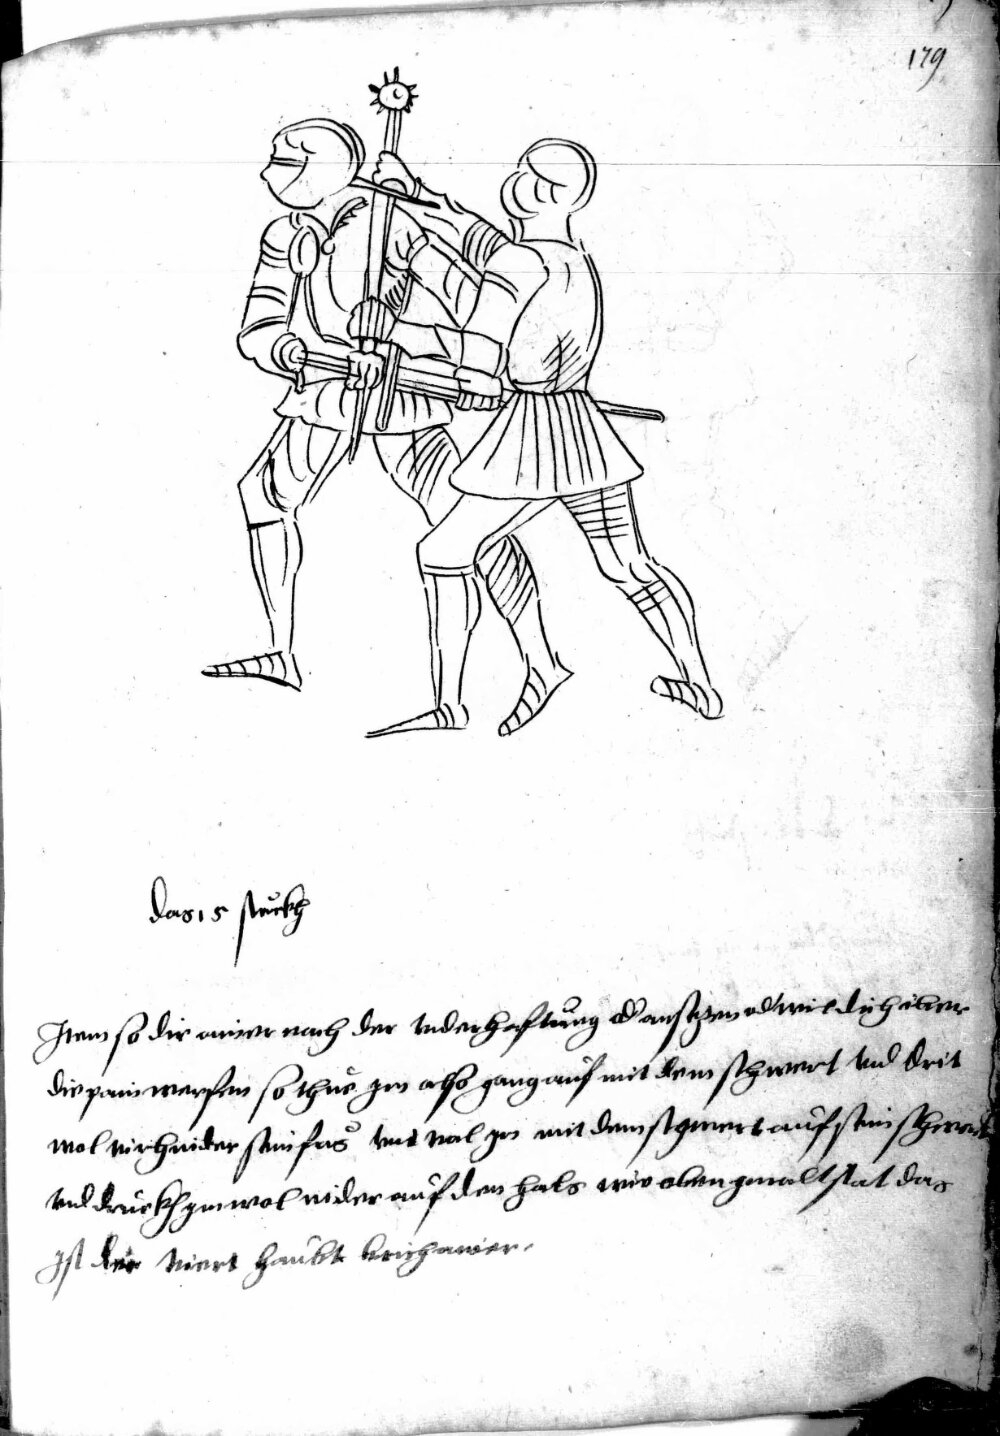 179
das 15 stuckh
Item so dir ainer nach der underhaftung od ansetzen od wil dich über
die pain werfen so thue jm also gang auf mit dem schwert und drit
wol hinder sein fues und val jm mit dem schwert auf sein schwert
und druckh jm wol nider auf den hals wie oben gmalt stat das
Ist der viert haubt